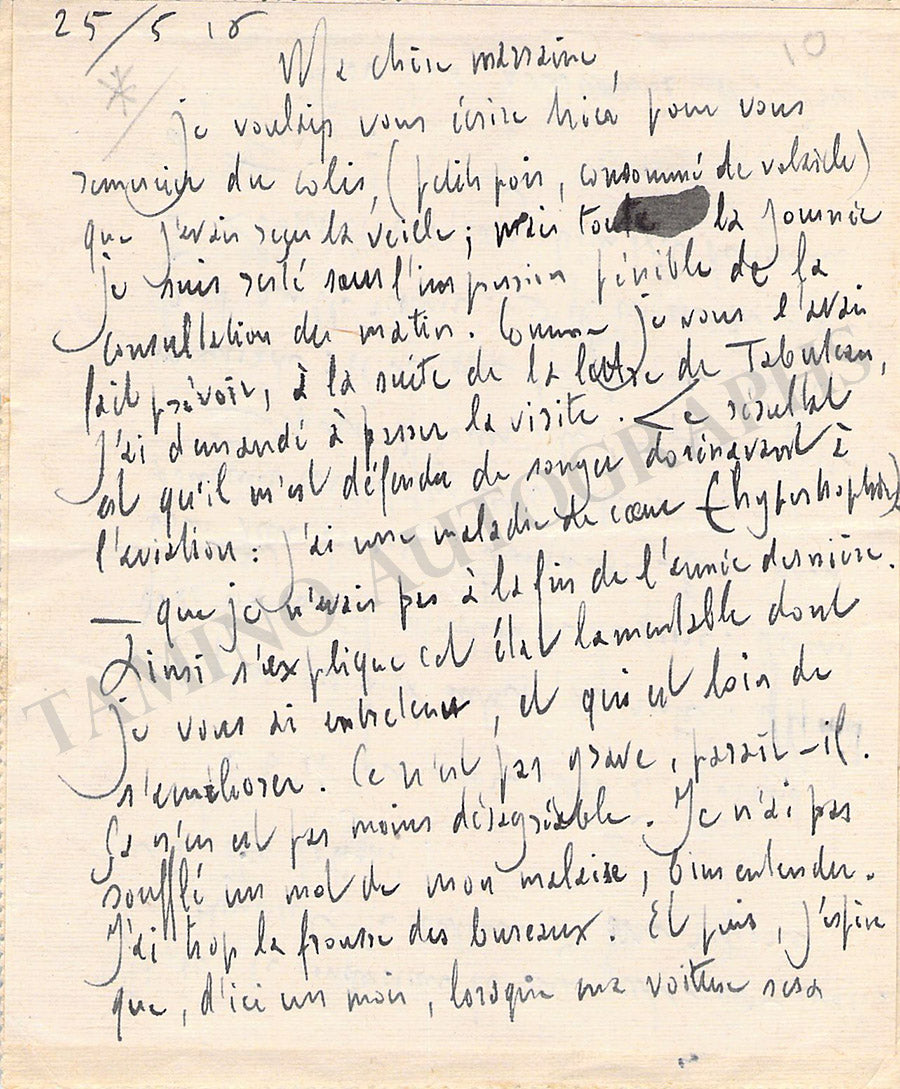 25/5 16
10
Ma chère marraine,
je voulais vous écrire hier pour vous
remercier du colis, (petits pois, consommé de volaille)
que j'avais reçu la veille ; mais toute la journée
je suis resté sous l'impression pénible de la
consultation du matin. Comme je vous l'avais
fait prévoir, à la suite de la lettre de Tabuteau,
j'ai demandé à passer la visite. Le résultat
est qu'il m'est défendu de songer dorénavant à
l'aviation : j'ai une maladie de cœur (hypertrophie)
— que je n'avais pas à la fin de l'année dernière.
Ainsi s'explique cet état lamentable dont
je vous ai entretenue, et qui est loin de
s'améliorer. Ce n'est pas grave, parait-il.
Ça n'en est pas moins désagréable. Je n'ai pas
soufflé un mot de mon malaise, bien entendu.
J'ai trop la frousse des bureaux. Et puis, j'espère
que, d'ici un mois, lorsque ma voiture sera
TAMINO AUTOGRAPHS